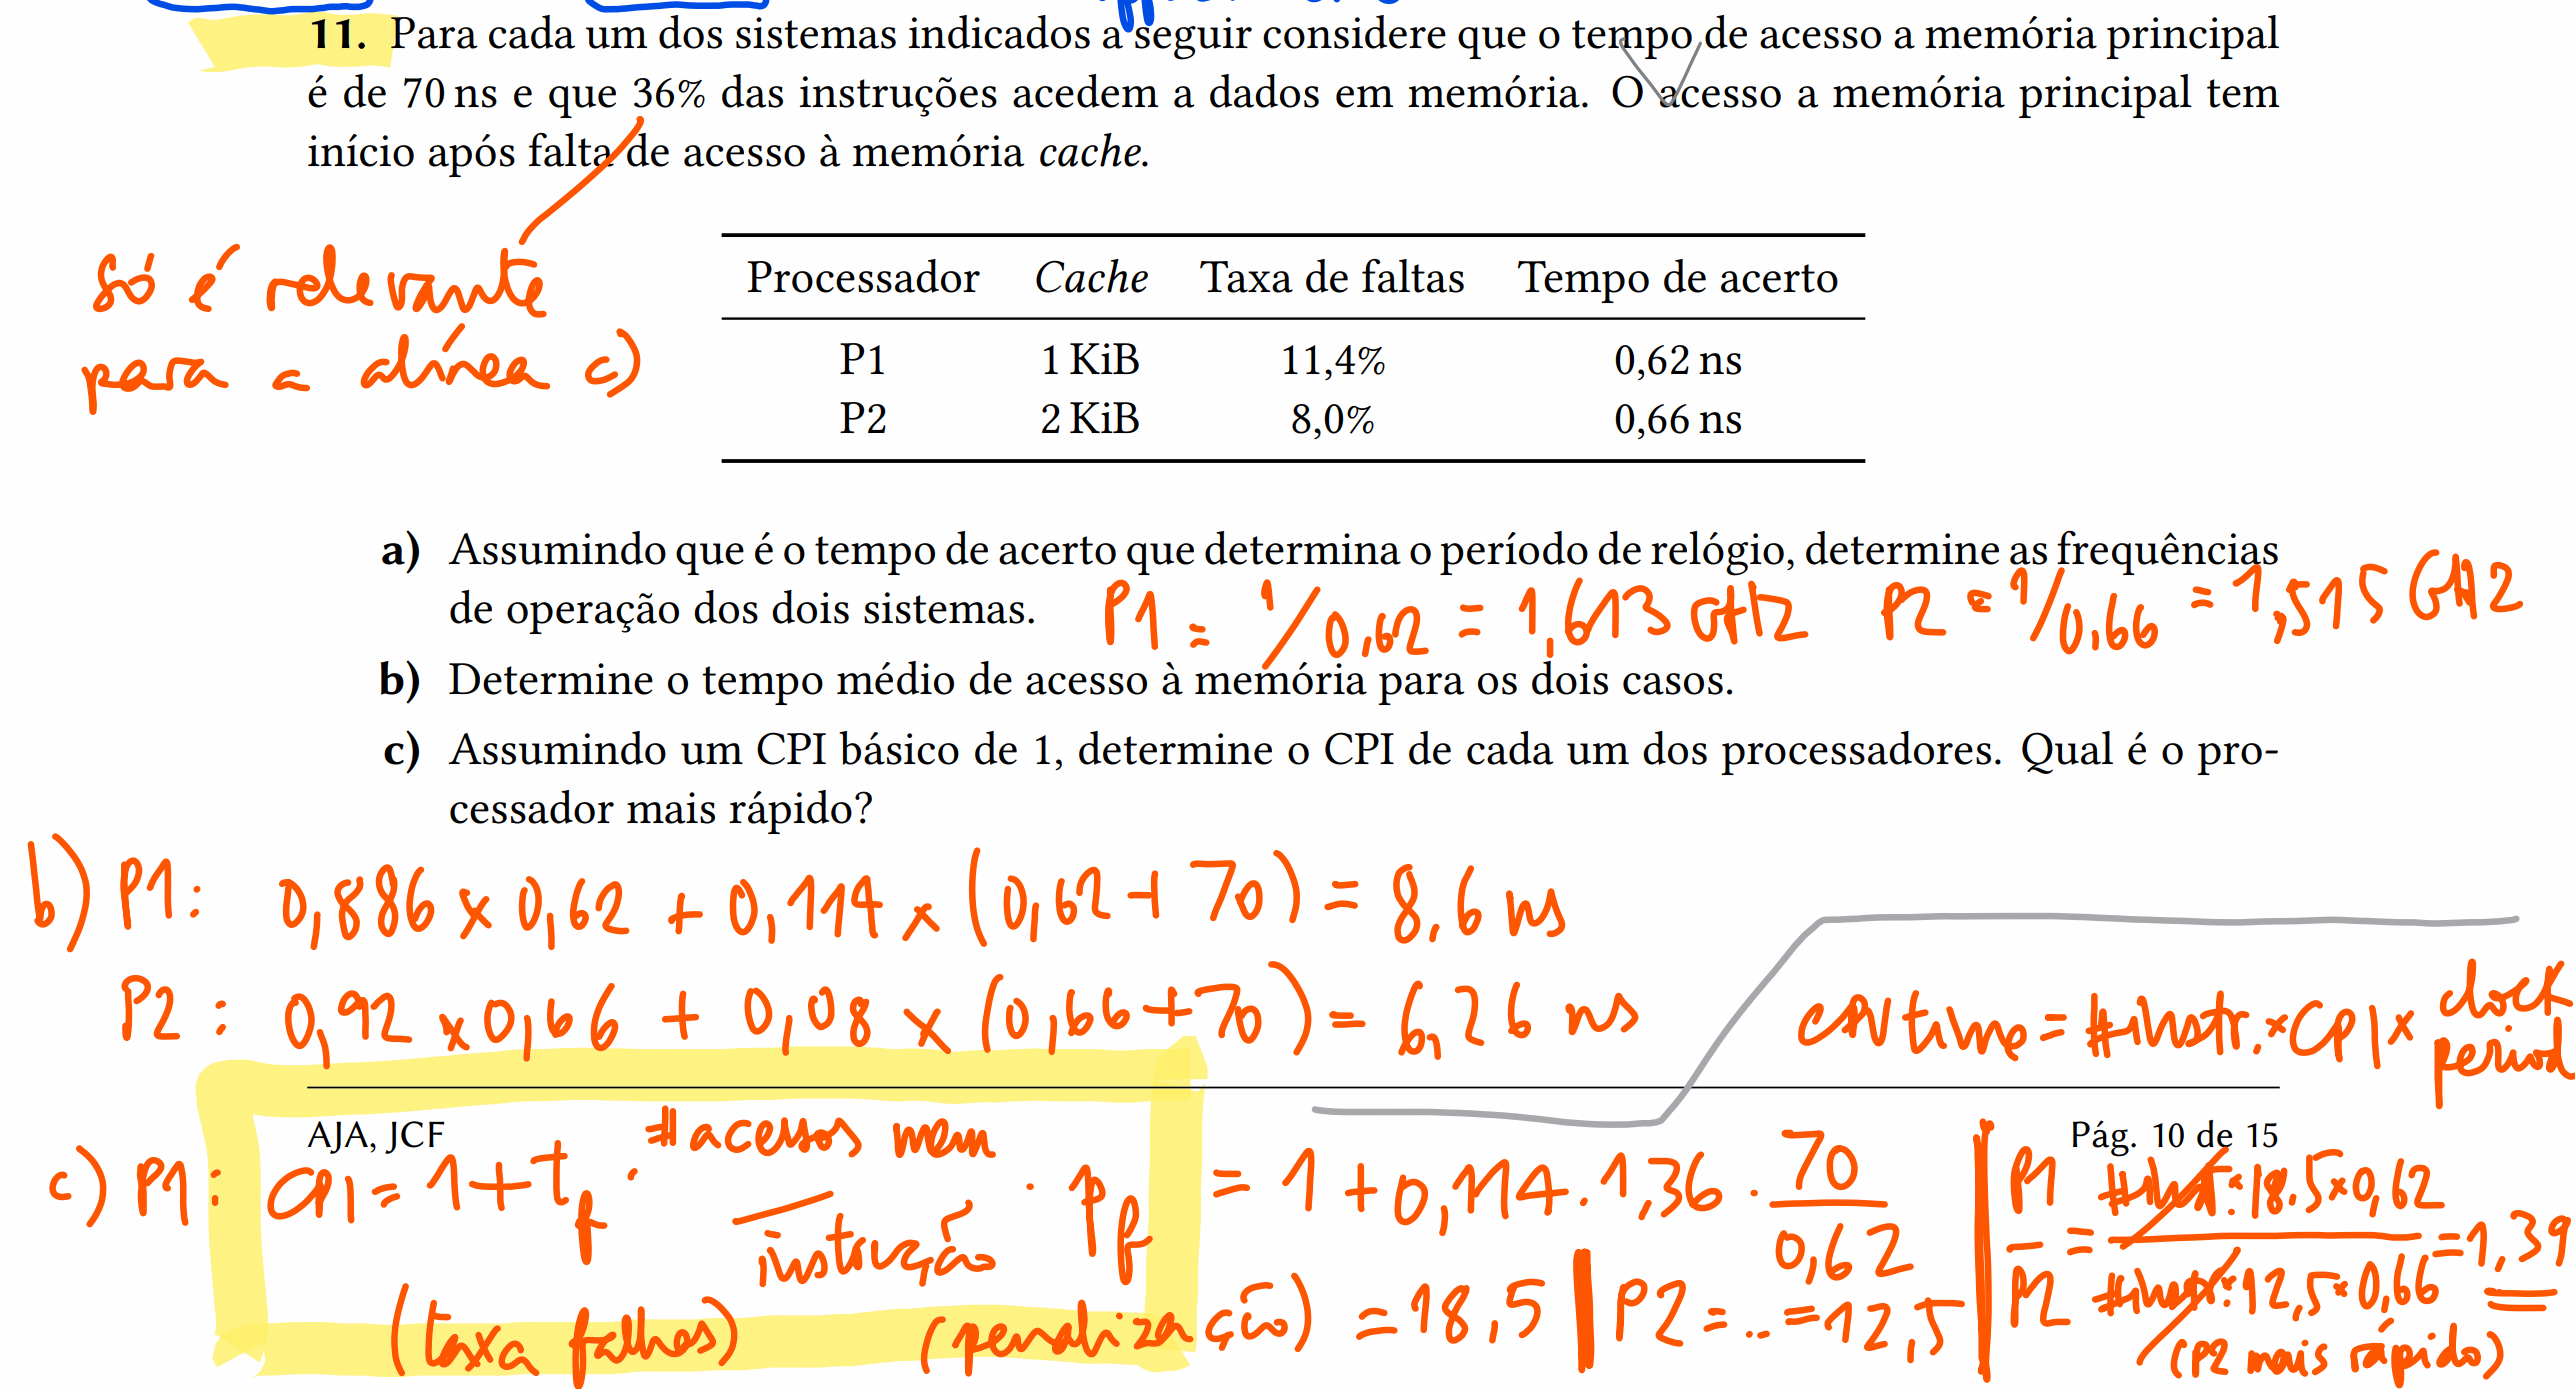 11. Para cada um dos sistemas indicados a seguir considere que o tempo de acesso a memória principal
é de 70 ns e que 36% das instruções acedem a dados em memória. O acesso a memória principal tem
início após falta de acesso à memória cache.
só é relevante
para a alínea c)
Processador Cache Taxa de faltas Tempo de acerto
P1 1 KiB 11,4% 0,62 ns
P2 2 KiB 8,0% 0,66 ns
a) Assumindo que é o tempo de acerto que determina o período de relógio, determine as frequências
de operação dos dois sistemas.
P1 = 1/0,62 = 1,613 GHz P2 = 1/0,66 = 1,515 GHz
b) Determine o tempo médio de acesso à memória para os dois casos.
c) Assumindo um CPI básico de 1, determine o CPI de cada um dos processadores. Qual é o pro-
cessador mais rápido?
b) P1: 0,886 x 0,62 + 0,114 x (0,62 + 70) = 8,6 ns
P2: 0,92 x 0,66 + 0,08 x (0,66 + 70) = 6,26 ns
CPU time = #instr. x CPI x clock period
AJA, JCF
Pág. 10 de 15
c) P1: CPI = 1 + tf . #acessos mem / instrução . pf = 1 + 0,114 . 1,36 . 70/0,62
(taxa falhas) (penalização) = 18,5 | P2 = .. = 12,5
P1/P2 = #inst. x 18.5 x 0,62 / #inst. x 12,5 x 0,66 = 1,39
(P2 mais rápido)